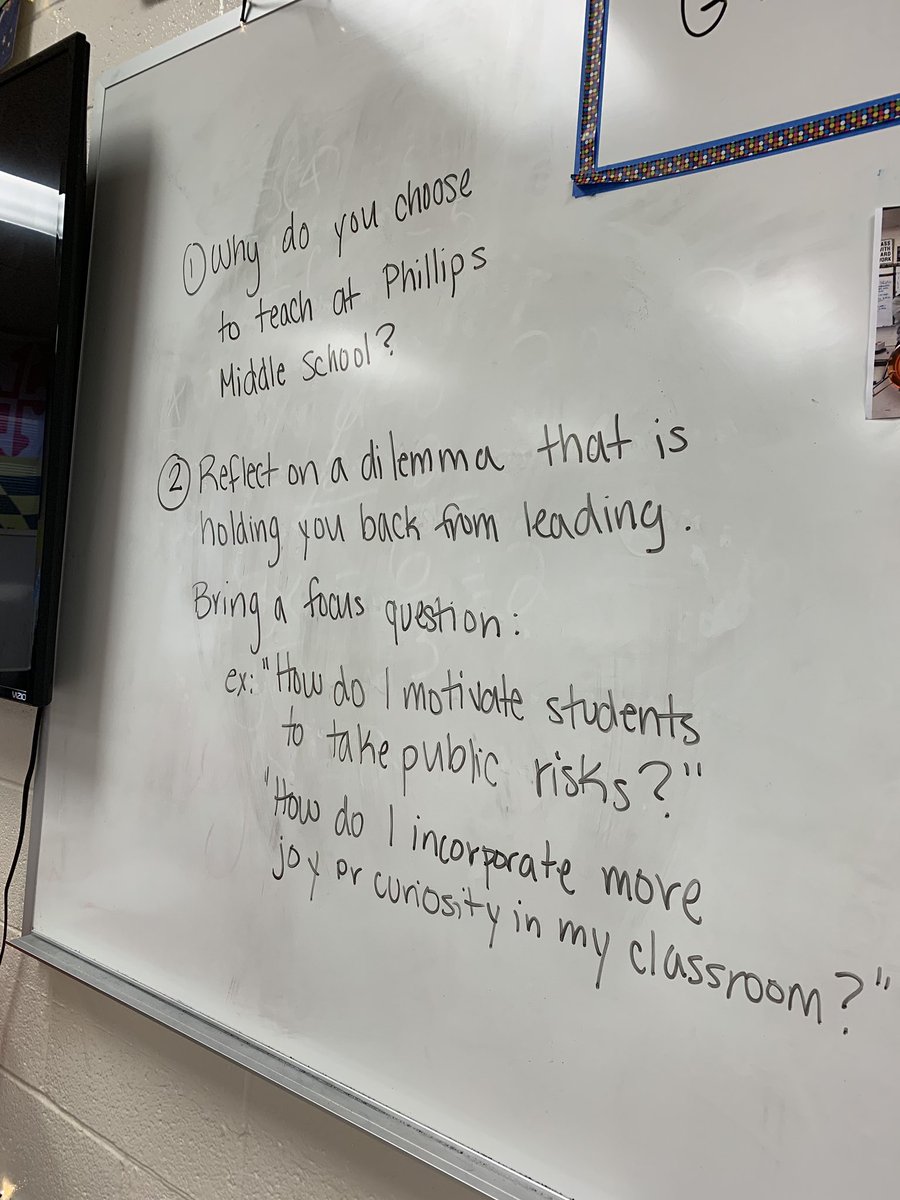 ① Why do you choose
to teach at Phillips
Middle School?
② Reflect on a dilemma that is
holding you back from leading.
Bring a focus question:
ex: "How do I motivate students
to take public risks?"
"How do I incorporate more
joy or curiosity in my classroom?"
G
VIZIO